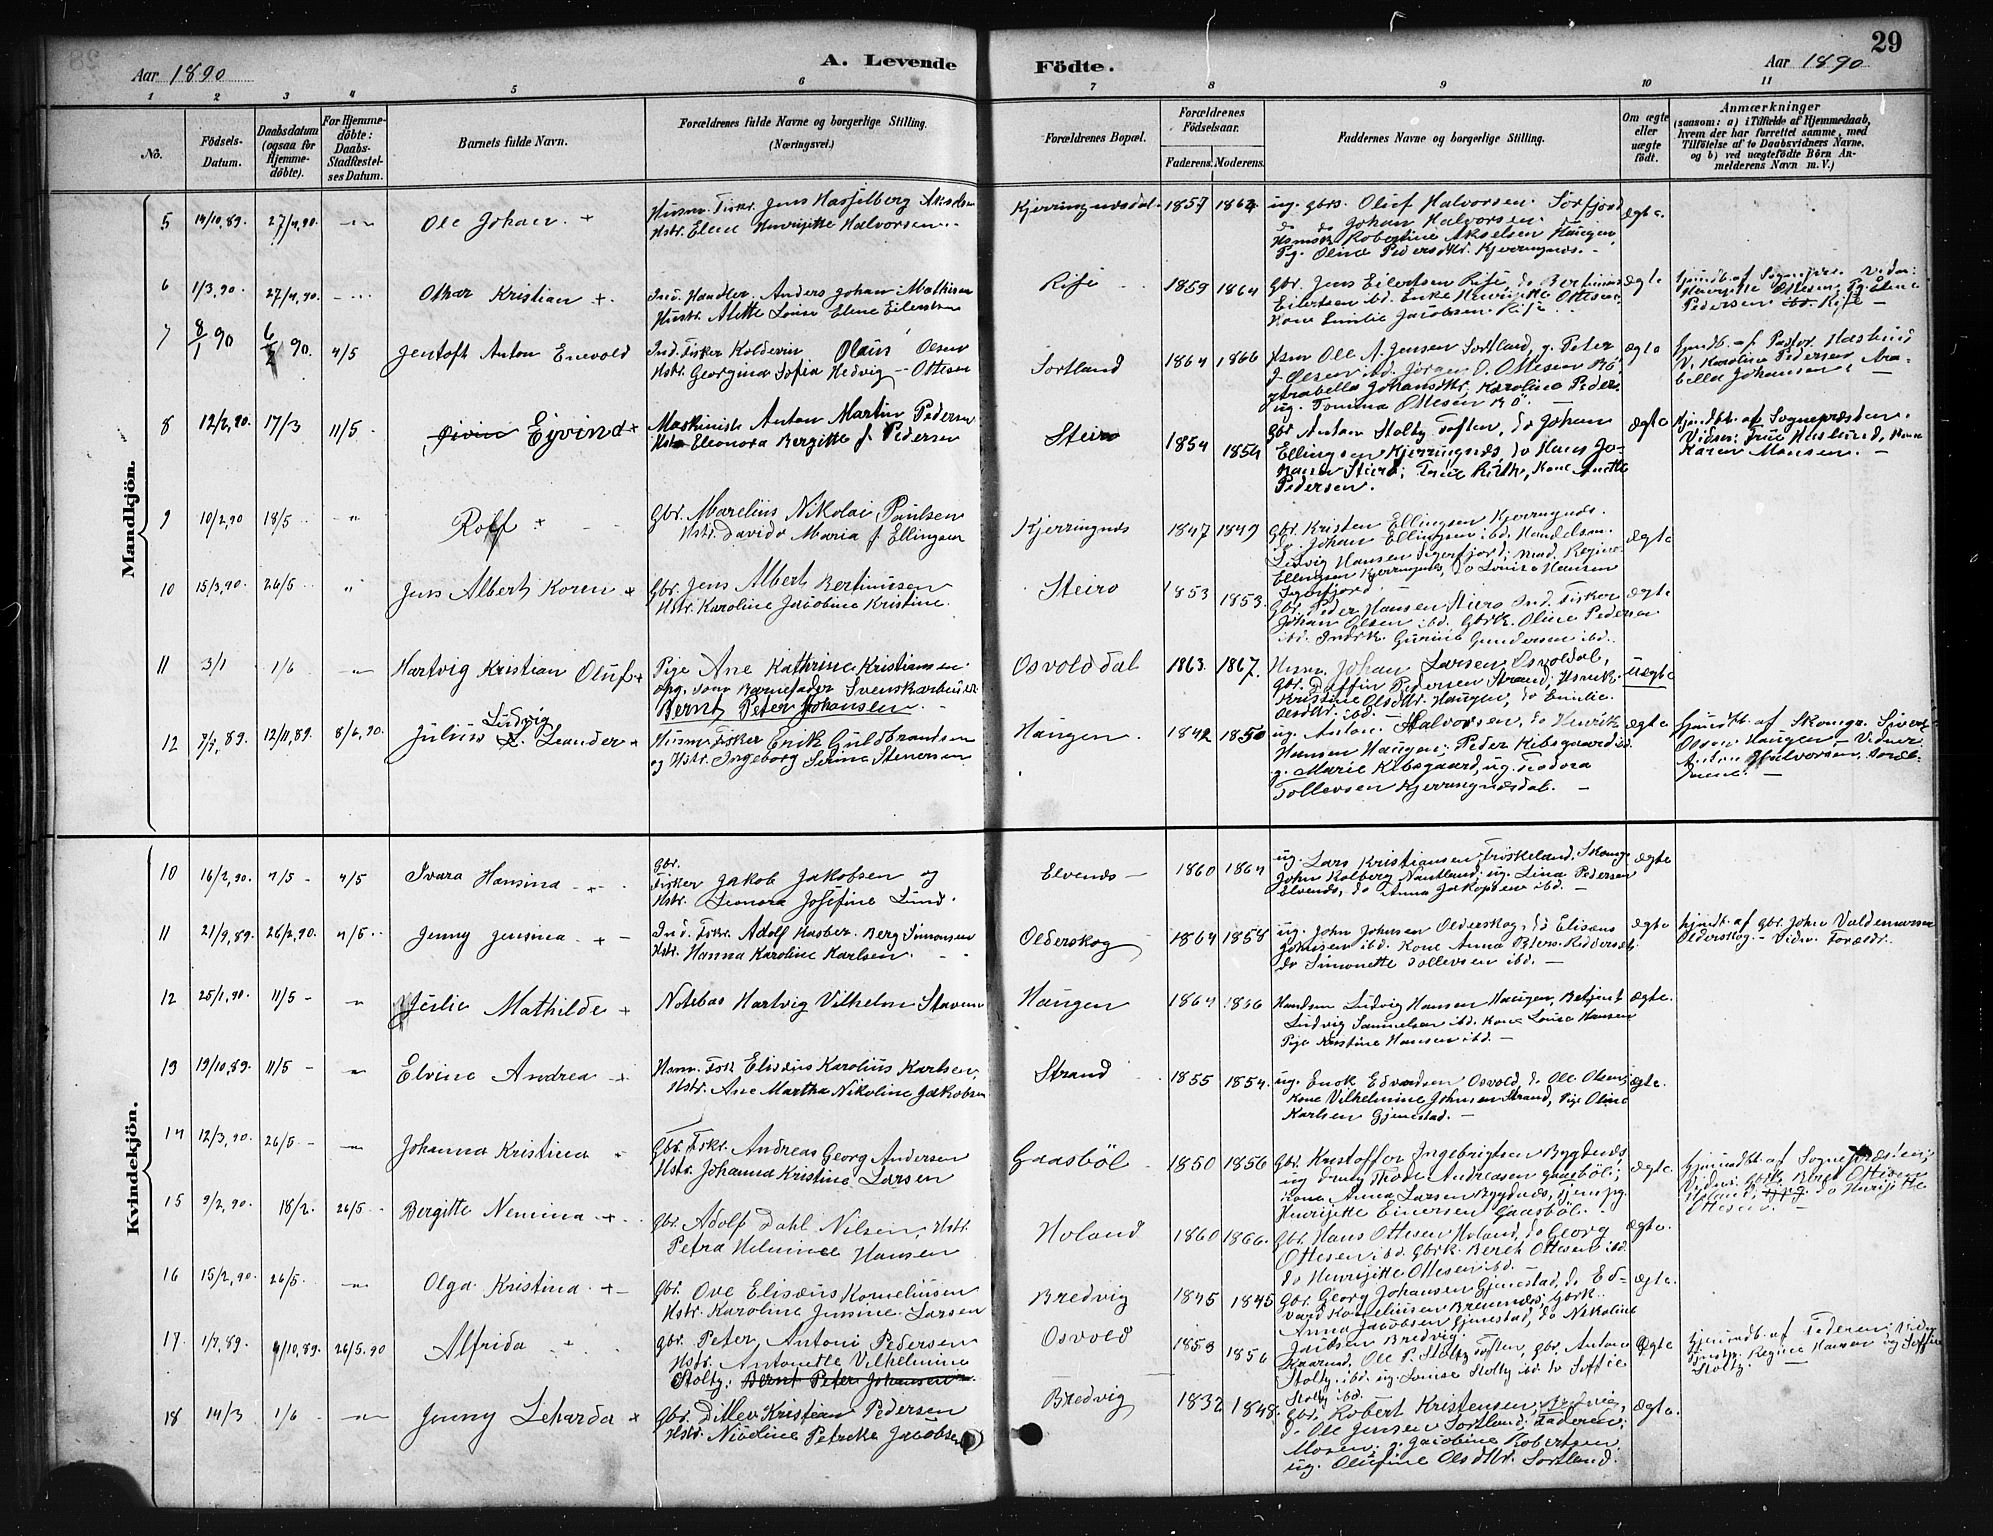 29
Aar 1890
A. Levende Födte.
Aar 1890
1 2 3 4 5 6 7 8 9 10 11
No.
Födsels-Datum.
Daabsdatum (ogsaa for Hjemme-döbte).
For Hjemme-döbte: Daabs-Stadfæstel-ses Datum.
Barnets fulde Navn.
Forældrenes fulde Navne og borgerlige Stilling.
(Næringsvei.)
Forældrenes Bopæl.
Forældrenes Födselsaar.
Faderens. Moderens.
Faddernes Navne og borgerlige Stilling.
Om ægte eller uægte födt.
Anmærkninger
(saasom: a) i Tilfælde af Hjemmedaab,
hvem der har forrettet samme, med
Tilföielse af to Daabsvidners Navne,
og b) ved uægtefödte Börn An-
melderens Navn m. V.)
Mandkjön.
5 14/10,89. 27/4,90. Ole Johan +
Husm. Fisker Jens Hasselberg
Hstr. Elene Henrijette Halvorsen
Kjerringnesdal 1857 1862
ug. gbrs. Oluf Halvorsen Sorfjord
do do Johan Halvorsen
Robertine Akselsen Haugen
Pg. Oline Pedersdtr. Kjerringnes.
ægte.
6 1/3,90. 27/4,90. Othar Kristian +
Ind. Handler. Anders Johan Mathisen
Hustr. Alette Lovise Elene Eilertsen
Rise 1859 1864
Gbr. Jens Eilertsen Rise, do Bertinus
Eilertsen ibd. Enke Henrijette Ottesen
Kone Emilie Jacobsen Rise
ægte
Hjemdbt. af Sognepr. Vidn:
Henrijette Ottesen, Pg. Eline
Pedersen ibd. Rise —
7 8/1 90 6/2 90. 4/5 Jentoft Anton Enevold
Ind. Fisker Koldevin Olaus Olsen
Hstr. Georgina Sofia Hedvig Ottesen
Sortland 1864 1866
Hsm Ole A. Jensen Sortland, g. Peter
J. Olsen ibd. Jörgen O. Ottesen Bö,
Arabella Johansdtr, Karoline Peder-
ug. Tomina Ottesen Bö
ægte
hjmdb. af Pastor Haslund
V. Karoline Pedersen Ara-
bella Johansen
8 12/2,90. 17/3 11/5 Eivind Ejvind +
Maskinist Anton Martin Pedersen
Hst. Eleonora Bergitte f. Pedersen
Steiro 1854 1854
Gbr Anton Stoltz Toften, do Johan
Ellingsen Kjerringnes, do Hans Jo-
hansen Steiro, Frue Rüth, Kone Anette
Pedersen.
ægte
Hjemdbt. af Sognepræsten.
Vidner: Frue Haslund, Kone
Karen Monsen. —
9 10/2,90 18/5 Rolf +
Gbr. Marelius Nikolai Paulsen
Hstr. Davida Maria f. Ellingsen
Kjerringnes 1847 1849
Gbr. Kristen Ellingsen Kjerringnes.
do Johan Ellingsen ibd. Handelsm.
Ludvig Hansen Sigerfjord, Mad. Regine
Ellingsen Kjerringnes, do Louise Hansen
Sigerfjord.
ægte
10 15/3,90. 26/5 Jens Albert Koren +
Gbr. Jens Albert Bertinusen
Hstr. Karoline Jacobine Kristine.
Steiro 1853 1853.
Gbr. Peder Hansen Steiro Ind. Fisker
Johan Olsen ibd. Gbrk. Oline Pedersen
ibd. Indrk Gurine Gundersen ibd.
ægte
11 3/1 1/6 Hartvig Kristian Oluf +
Pige Ane Kathrine Kristiansen
opg. som Barnefader Svensk arbeider
Bernt Peter Johansen
Osvolddal 1863. 1867.
Husm. Johan Larsen Osvoldal,
Gbr. Daffin Pedersen Strand, Hsmk.
Kristine Olsdtr. Haugen, do Emilie
Olsdtr. ibd. —
uægte
12 7/9,89. 12/11,89. 8/6,90. Julius Ludvig L. Leander +
Husm. Fisker Erik Guldbrandsen
og Hstr. Ingeborg Serine Stenersen
Haugen 1842 1850
ug. Anton Halvorsen, do Henrik
Hansen Haugen, Peder Kibsgaard ibd.
g. Marie Kibsgaard, ug. Teodora
Tollevsen Kjerringnesdal. —
ægte
hjmdbt. af Skomgr. Sivert
Olsen Haugen — Vidner
Anton Halvorsen,
Kvindekjön.
10 16/2,90. 4/5 - 4/5 Ivara Hansina +
Gbr.
Fisker Jakob Jakobsen og
Hstr. Leonora Josefine Lund.
Elvenes — 1860 1864
ug. Lars Kristiansen Friskeland, Skomg.
John Kolberg Nautland, ug. Lina Pedersen
Elvenes, do Anna Jakobsen ibd. —
ægte
11 21/9,89. 26/2,90. 4/5 Jenny Jensina +
Ind. Fskr. Adolf Kasber. Berg Simonsen
Hstr. Hanna Karoline Karlsen.
Olderskog 1864 1858
ug. John Johnsen Olderskog, do Elisæus
Johnsen ibd. Kone Anna
do Simonette Tollevsen ibd. —
ægte
hjmdt. af gbr. John Valdemarsen
Olderskog. — Vidn. Forældr.
12 25/1,90. 11/5 - Julie Mathilde +
Notebas Hartvig Vilhelm Stavem
Haugen 1864 1866
Handsm. Ludvig Hansen Haugen, Betjent
Ludvig Samuelsen ibd. Kone Louise Hansen
Pige Kristine Hansen ibd. —
ægte.
13 19/10,89. 11/5 - Elvine Andrea +
Husm. Fsk Elisæus Karolius Karlsen,
Hstr. Ane Martha Nikoline Jakobsen
Strand 1855 1854.
ug. Enok Edvardsen Osvold, do Ole Olsen,
Kone Vilhelmine Johnsen Strand, Pige Oline
Karlsen Gjenestad. —
ægte.
14 12/3,90. 26/5 - Johanna Kristina
Gbr. Fskr. Andreas Georg Andersen
Hstr. Johanna Kristine Larsen
Gaasböl 1850 1856
Gbr. Kristoffer Ingebrigtsen Bygdnes
ug Andreasen Gaasböl,
Kone Anna Larsen Bygdnes,
Henrijette Einersen Gaasböl.
ægte
15 9/2,90. 18/2. 26/5 Bergitte Nemina +
Gbr. Adolf Dahl Nilsen, Hstr.
Petra Helmine Hansen
Holand 1860 1866.
Gbr. Hans Ottesen Holand, do Georg
Ottesen ibd. Gbrk. Beret Ottesen ibd.
do Henrijette Ottesen ibd. —
ægte.
hjemdbt af Sognepræsten;
Vidner: Gbrk. Beret Ottesen
Holand, do Henrijette
Ottesen. —
16 15/2,90. 26/5. Olga Kristina +
Gbr. Ove Elisæus Korneliusen
Hstr. Karoline Jensine Larsen
Bredvig 1845 1845
Gbr. Georg Johansen Gjenestad, do Ed-
vard Korneliusen Bremnes Gbrk.
Anna Jacobsen Gjenestad, do Nikoline
Jacobsen Bredvig.
ægte.
17 1/7,89. 9/10,89. 26/5.90 Alfrida
Gbr. Peter Antoni Pedersen
Hstr. Antonette Vilhelmine
Stoltz. Bernt Peter Johansen
Osvold 1853 1856
Ole P. Stoltz Toften, Gbr. Anton
Stoltz ibd. ug. Louise Stoltz ibd. do Soffie
Stoltz ibd.
Ægte
hjemmdbt. af Faderen; Vidn
Regine Hansen og Soffie
Stoltz. —
18 14/3 1/6 Jenny Leharda +
Gbr. Ditlev Kristian Pedersen
Hstr. Nicoline Petrikke Jacobsen
Bredvig 1832 1848.
Gbr. Robert Kristensen Bredvig,
do Ole Jensen Sortland, Faderen,
Moren, g. Jacobine Robertsen,
ug. Olufine Olsdtr. Sortland.
ægte.